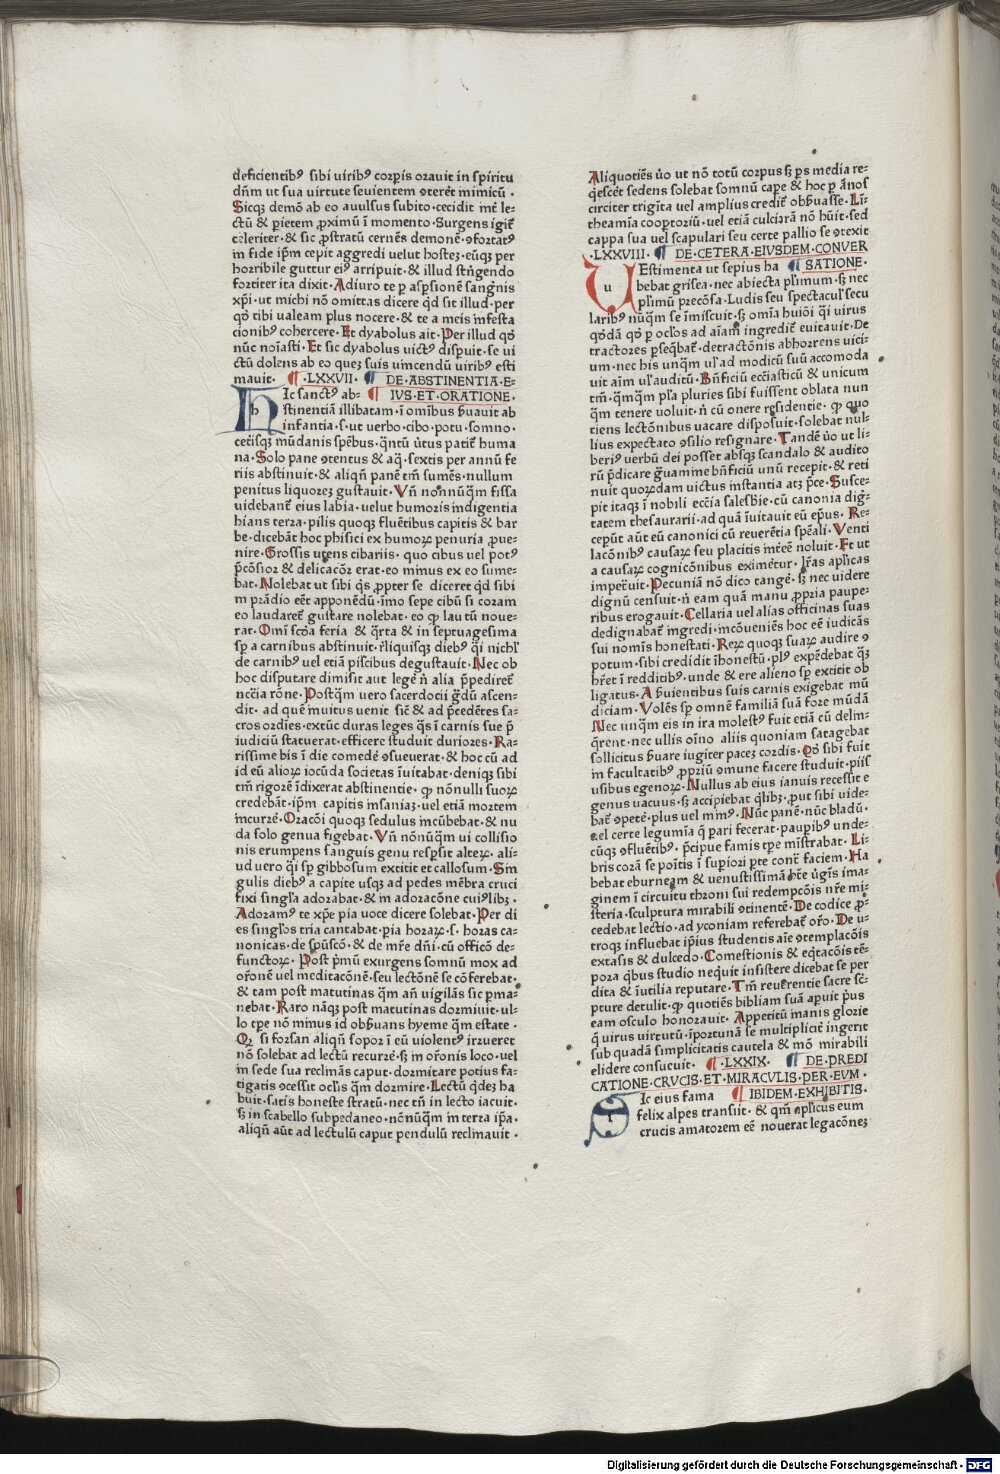 deficientibꝰ sibi uiribꝰ corꝑis orauit in spiritu
dn̄m ut sua uirtute seuientem ꝯtereret inimicū ·
Sicqꝫ demō ab eo auulsus subito·cecidit inter le⸗
ctū & parietem ꝓximū ī momento·Surgens igiť
celeriter·& sic ꝓstratū cernēs demonē·ꝯfortatꝰ
in fide ip̄m cepit aggredi uelut hosteꝫ·eūqꝫ per
horribile guttur eiꝰ arripuit·& illud stringendo
fortiter ita dixit·Adiuro te ꝑ aspersionē sangnis
xp̄i·ut michi nō omittas dicere qd̄ sit illud·per
qō tibi ualeam plus nocere·& te a meis infesta
cionibꝰ cohercere·Et dyabolus ait·Per illud qō
nūc noīasti·Et sic dyabolus uictꝰ disꝑuit·se ui
ctū dolens ab eo queꝫ suis uincendū uiribꝰ esti
mauit· ¶·LXXVII· ¶ DE·ABSTINENTIA·E⸗
Hic sanctꝰ ab⸗ ¶ IVS·ET·ORATIONE·
stinentiā illibatam·ī omībus seruauit ab
infantia·s·ut uerbo·cibo·potu·somno·
cetisqꝫ mūdanis spēbus·qntū uirtus patiť huma
na·Solo pane ꝯtentus & aq̄·sextis per annū fe
riis abstinuit·& aliqn̄ panē tm̄ sumēs·nullum
penitus liquoreꝫ gustauit·Vn̄ nonnūqm̄ fissa
uidebant̄ eius labia·uelut humoris indigentia
hians terra·pilis quoqꝫ fluētibus capitis & bar
be·dicebāt hoc phisici ex humoꝝ penuria ꝓue⸗
nire·Grossis utens cibariis·quo cibus uel potꝰ
p̄cōsior & delicacōꝛ erat·eo minus ex eo sume⸗
bat·Nolebat ut sibi qͥs ꝓpter se diceret qd̄ sibi
in prādio eēt apponēdū·imo sepe cibū si coram
eo laudaret̄ gustare nolebat·eo qꝫ lautū noue⸗
rat·Omī scd̄a feria & qͣrta & in septuagesima
sꝑ a carnibus abstinuit·reliquisqꝫ diebꝰ qͥ nichl̄
de carnibꝰ uel etiā piscibus degustauit·Nec ob
hoc disputare dimisit aut legē n̄ alia p̄pediret̄
nccīa rōne·Postqm̄ uero sacerdocii gradū ascen⸗
dit·ad quē inuitus uenit sic̄ & ad p̄cedētes sa⸗
cros ordīes·extūc duras leges qͣs ī carnis sue p̄
iudiciū statuerat·efficere studuit duriores·Ra⸗
rissime bis ī die comedē ꝯsueuerat·& hoc cū ad
id eū alioꝝ iocūda societas īuitabat·deniqꝫ sibi
tm̄ rigorē īdixerat abstinentie· qꝫ nōnulli suoꝝ
credebāt·ip̄m capitis insaniaꝫ·uel etiā mortem
īncurrē·Oracōi quoqꝫ sedulus incūbebat·& nu
da solo genua figebat·Vn̄ nōnūqm̄ ui collisio
nis erumpens sanguis genu resꝑsit alteꝝ·ali⸗
ud uero qͥ sꝑ gibbosum extitit et callosum·Sin
gulis diebꝰ a capite usqꝫ ad pedes mēbra cruci
fixi singl̄a adorabat·& in adoracōne cuiꝰlibꝫ·
Adoramꝰ te xp̄e pia uoce dicere solebat·Per di
es singl̄os tria cantabat·pia horaꝝ·s·horas ca⸗
nonicas·de sp̄uscō·& de mr̄e dn̄i·cū officō de⸗
functoꝝ· Post pͥmū exurgens somnū mox ad
or̄onē uel meditacōnē·seu lectōnē se cōferebat·
& tam post matutinas qm̄ an̄ uigilās sic ꝑma⸗
nebat·Raro nāqꝫ post matutinas dormiuit·ul⸗
lo tp̄e nō minus id obseruans hyeme qm̄ estate ·
Qꝫ si forsan aliqn̄ sopor ī eū uiolentꝰ irrueret
nō solebat ad lectū recurrē·sꝫ in or̄onis loco·uel
in sede sua reclinās caput·dormitare potius fa⸗
tigatis ꝯcessit oclis qm̄ dormire·Lectū qͥdeꝫ ha
buit·satis honeste stratū·nec tn̄ in lecto iacuit·
sꝫ in scabello subpedaneo·nōnūqm̄ in terra ip̄a·
aliqn̄ aūt ad lectulū caput pendulū reclinauit ·
Aliquotiēs ūo ut nō totū corpus sꝫ ps media re⸗
qͥesceret sedens solebat somnū caꝑe & hoc ꝑ ānos
circiter trigīta uel amplius crediť obseruasse·Lin⸗
theamīa cooptoriū·uel etiā culcitrā nō hūit·sed
cappa sua uel scapulari seu certe pallio se ꝯtexit
·LXXVIII· ¶ DE·CETERA·EIVSDEM·CONVER
Vestimenta ut sepius ha ¶ SATIONE·
bebat grisea·nec abiecta plīmum·sꝫ nec
plīmū precōsa·Ludis seu spectacul̄ secu
laribꝰ nūqm̄ se īmiscuit·sꝫ om̄īa huiōi qͥ uirus
qōdā qō ꝑ oclos ad aīam ingrediť euitauit·De
tractores ꝑseqͣbaī·detractōnis abhorrens uici⸗
um·nec his unqm̄ ul̄ ad modicū suū accomoda
uit aīm ul̄ auditū·Bn̄ficiū ecclīasticū & unicum
tm̄·qm̄qm̄ pl̄a pluries sibi fuissent oblata nun
qm̄ tenere uoluit·n̄ cū onere residentie·qꝫ quo
tiens lectōnibus uacare disposuit·solebat nul⸗
lius expectato ꝯsilio resignare·Tandē ūo ut li⸗
beriꝰ uerbū dei posset absqꝫ scandalo & audito
rū p̄dicare grauamine bn̄ficiū unū recepit·& reti
nuit quorꝫdam uictus instantia atꝫ p̄ce·Susce⸗
pit itaqꝫ ī nobili eccīa salesbīe·cū canonia dig⸗
tatem thesaurarii·ad quā īuitauit eū ep̄us· Re⸗
cepūt aūt eū canonici cū reuerētia spēali·Venti
lacōnibꝰ causaꝝ seu placitis intēē noluit·Et ut
a causaꝝ cognicōnibus eximeretur·lr̄as ap̄licas
impetrauit·Pecuniā nō dico tangē·sꝫ nec uidere
dignū censuit·n̄ eam quā manu ꝓpria paupe⸗
ribus erogauit·Cellaria uel alias officinas suas
dedignabat̄ ingredi·incōueniēs hoc eē iudicās
sui nomīs honestati·Reꝝ quoqꝫ suaꝝ audire ꝯ
potum·sibi credidit īhonestū·plꝰ expēdebat qͣꝫ
hr̄et ī redditibꝰ·unde & ere alieno sꝑ extitit ob
ligatus·A seruientibus suis carnis exigebat mū
diciam·Volēs sꝑ omnē familiā suā fore mūdā
Nec unqm̄ eis in ira molestꝰ fuit etiā cū delin⸗
qͣrent·nec ullis oīno aliis quoniam satagebat
sollicitus seruare iugiter paceꝫ cordis·Qō sibi fuit
in facultatibꝰ ꝓpriū ꝯmune facere studuit·piis
usibus egenoꝝ·Nullus ab eius ianuis recessit e
genus uacuus·sꝫ accipiebat qͥlibꝫ·ꝓut sibi uide⸗
bat̄ oꝑtē·plus uel minꝰ·Nūc panē·nūc bladū·
uel certe legumīa qͥ pari fecerat·paupibꝰ unde⸗
cūqꝫ ꝯfluētibꝰ·p̄cipue famis tp̄e mīstrabat·Li⸗
bris corā se po̅itis ī suꝑiori ꝑte contra faciem·Ha
bebat eburneam & uenustissimā hr̄e uirgīs ima⸗
ginem ī circuitu throni sui redempcōis nr̄e mi⸗
steria·sculptura mirabili ꝯtinentē·De codice ꝓ⸗
cedebat lectio·ad yconiam referebat̄ or̄o·De u⸗
troqꝫ influebat ip̄ius studentis aīe ꝯtemplacōis
extasis & dulcedo·Comestionis & eqͥtacōis tē⸗
pora qͥbus studio neqͥuit insistere dicebat se per
dita & īutilia reputare·Tm̄ reuerentie sacre scri⸗
pture detulit·qꝫ quotiēs bibliam suā apuit prius
eam osculo honorauit·Appetitū inanis glorie
qͥ uirus uirtutū īportunā se multipliciť ingerit
sub quadā simplicitatis cautela & mō mirabili
elidere consueuit· ¶·LXXIX· ¶ DE·PREDI
CATIONE·CRVCIS·ET·MIRACVLIS·PER·EVM·
Sic eius fama ¶ IBIDEM·EXHIBITIS·
felix alpes transiit· & qm̄ ap̄licus eum
crucis amatorem eē nouerat legacōneꝫ
Digitalisierung gefördert durch die Deutsche Forschungsgemeinschaft - DFG